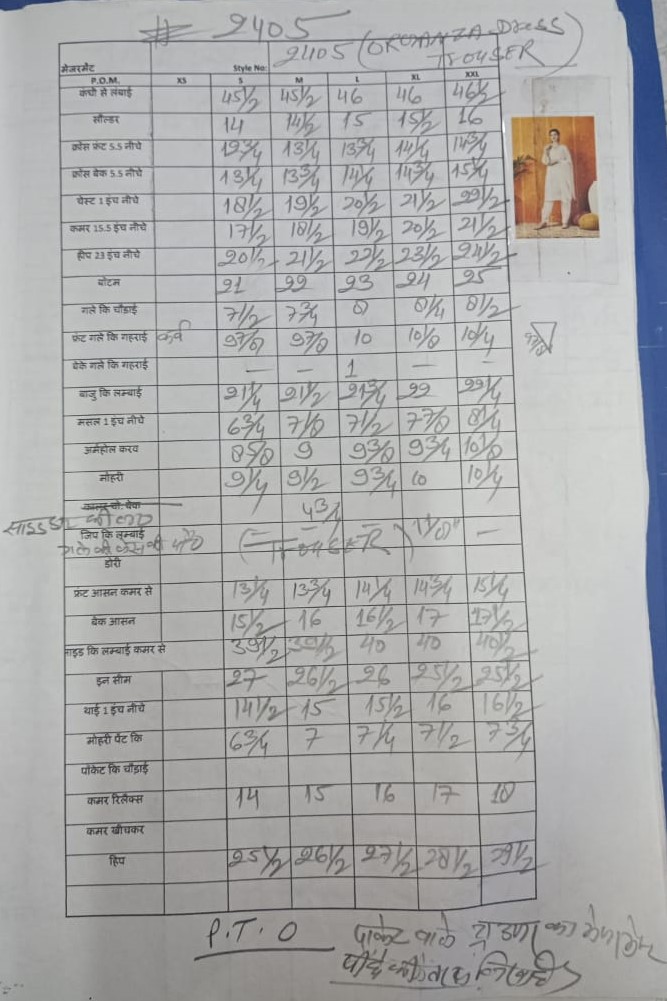 # 2405
2405 (ORGANZA DRESS
TROUSER)
मेजरमेंट Style No:
P.O.M. XS S M L XL XXL
कंधी से लंबाई 45 1/2 45 1/2 46 46 46 1/2
सौल्डर 14 14 1/2 15 15 1/2 16
क्रोस फ्रंट 5.5 नीचे 13 1/4 13 3/4 14 1/4 14 3/4
क्रोस बेक 5.5 नीचे 13 1/4 13 3/4 14 1/4 14 3/4 15 1/4
चेस्ट 1 इंच नीचे 18 1/2 19 1/2 20 1/2 21 1/2 22 1/2
कमर 15.5 इंच नीचे 17 1/2 18 1/2 19 1/2 20 1/2 21 1/2
हीप 23 इंच नीचे 20 1/2 21 1/2 22 1/2 23 1/2 24 1/2
बोटम 21 22 23 24 25
गले कि चौडाई 7 1/2 7 3/4 8 8 1/4 8 1/2
फ्रंट गले कि गहराई कर्व 9 7/8 9 7/8 10 10 1/8 10 1/4
बेके गले कि गहराई — — 1 — —
बाजु कि लम्बाई 21 1/4 21 1/2 21 3/4 22 22 1/4
मसल 1 इंच नीचे 6 3/4 7 1/8 7 1/2 7 7/8 8 1/4
अर्महोल करव 8 5/8 9 9 3/8 9 3/4 10 1/8
मोहरी 9 1/4 9 1/2 9 3/4 10 10 1/4
4 3/4
साइड
जिप कि लम्बाई
(TROUSER) 1 1/8" —
डोरी
फ्रंट आसन कमर से 13 1/4 13 3/4 14 1/4 14 3/4 15 1/4
बेक आसन 15 1/2 16 16 1/2 17 17 1/2
साइड कि लम्बाई कमर से 39 1/2 39 1/2 40 40 40 1/2
इन सीम 27 26 1/2 26 25 1/2 25 1/2
थाई 1 इंच नीचे 14 1/2 15 15 1/2 16 16 1/2
मोहरी पेंट कि 6 3/4 7 7 1/4 7 1/2 7 3/4
पॉकेट कि चौड़ाई
कमर रिलैक्स 14 15 16 17 18
कमर खीचकर
हिप 25 1/2 26 1/2 27 1/2 28 1/2 29 1/2
P.T.O पाकेट वाले का